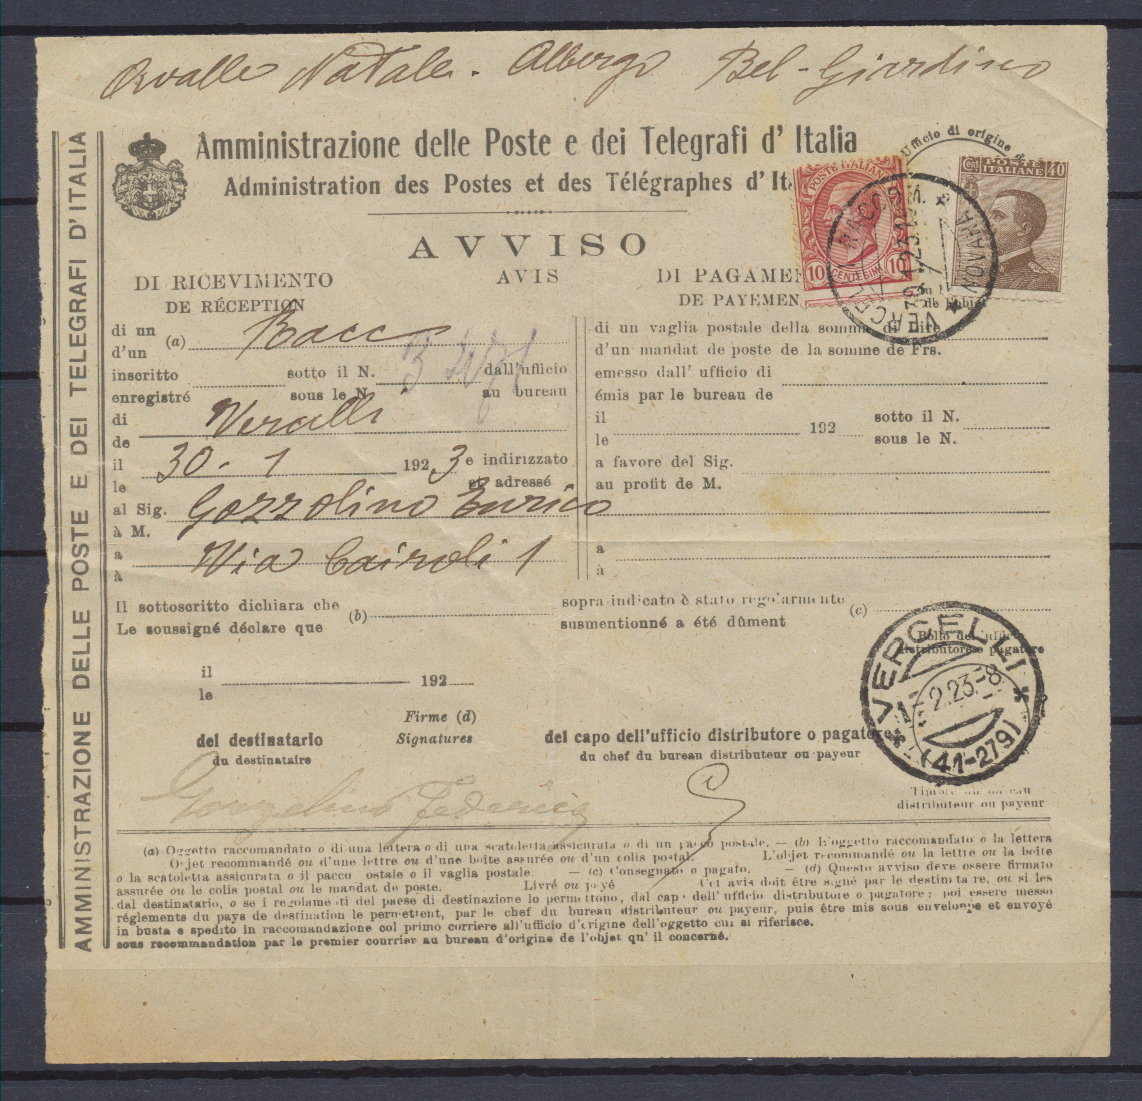 Ovalle Natale. Albergo Bel-Giardino
Amministrazione delle Poste e dei Telegrafi d' Italia
Administration des Postes et des Télégraphes d'It
AVVISO
AVIS
DI RICEVIMENTO
DE RÉCEPTION
di un (a) Racc
d'un
inscritto sotto il N. dall'ufficio
enregistré sous le N. au bureau
di Vercelli
de
il 30-1 1923 e indirizzato
le et adressé
al Sig. Gozzolino Enrico
à M.
a Via Cairoli 1
à
DI PAGAMEN
DE PAYEMEN
di un vaglia postale della somma di Lire
d'un mandat de poste de la somme de Frs.
emesso dall' ufficio di
émis par le bureau de
il 192 sotto il N.
le sous le N.
a favore del Sig.
au profit de M.
a
à
Il sottoscritto dichiara che (b) sopra indicato è stato regolarmente (c)
Le soussigné déclare que susmentionné a été dûment
il 192
le
Firme (d)
Signatures
del destinatario
du destinataire
del capo dell'ufficio distributore o pagatore
du chef du bureau distributeur ou payeur
Bollo dell'uffi
distributore o pagatore
distributeur ou payeur
(a) Oggetto raccomandato o di una lettera o di una scatoletta assicurata o di un pacco postale. — (b) L'oggetto raccomandato o la lettera
Objet recommandé ou d'une lettre ou d'une boîte assurée ou d'un colis postal. L'objet recommandé ou la lettre ou la boîte
o la scatoletta assicurata o il pacco postale o il vaglia postale. — (c) Consegnato o pagato. — (d) Questo avviso deve essere firmato
assurée ou le colis postal ou le mandat de poste. Livré ou payé Cet avis doit être signé par le destinataire, ou si les
dal destinatario, o se i regolamenti del paese di destinazione lo permettono, dal capo dell' ufficio distributore o pagatore; poi essere messo
réglements du pays de destination le permettent, par le chef du bureau distributeur ou payeur, puis être mis sous enveloppe et envoyé
in busta e spedito in raccomandazione col primo corriere all'ufficio d'origine dell'oggetto cui si riferisce.
sous recommandation par le premier courrier au bureau d'origine de l'objet qu' il concerne.
AMMINISTRAZIONE DELLE POSTE E DEI TELEGRAFI D'ITALIA
Ufficio di origine
POSTE ITALIANE
10 CENTESIMI 10
Cent. POSTE ITALIANE 40
VERCELLI
2.23.-8
(41-279)